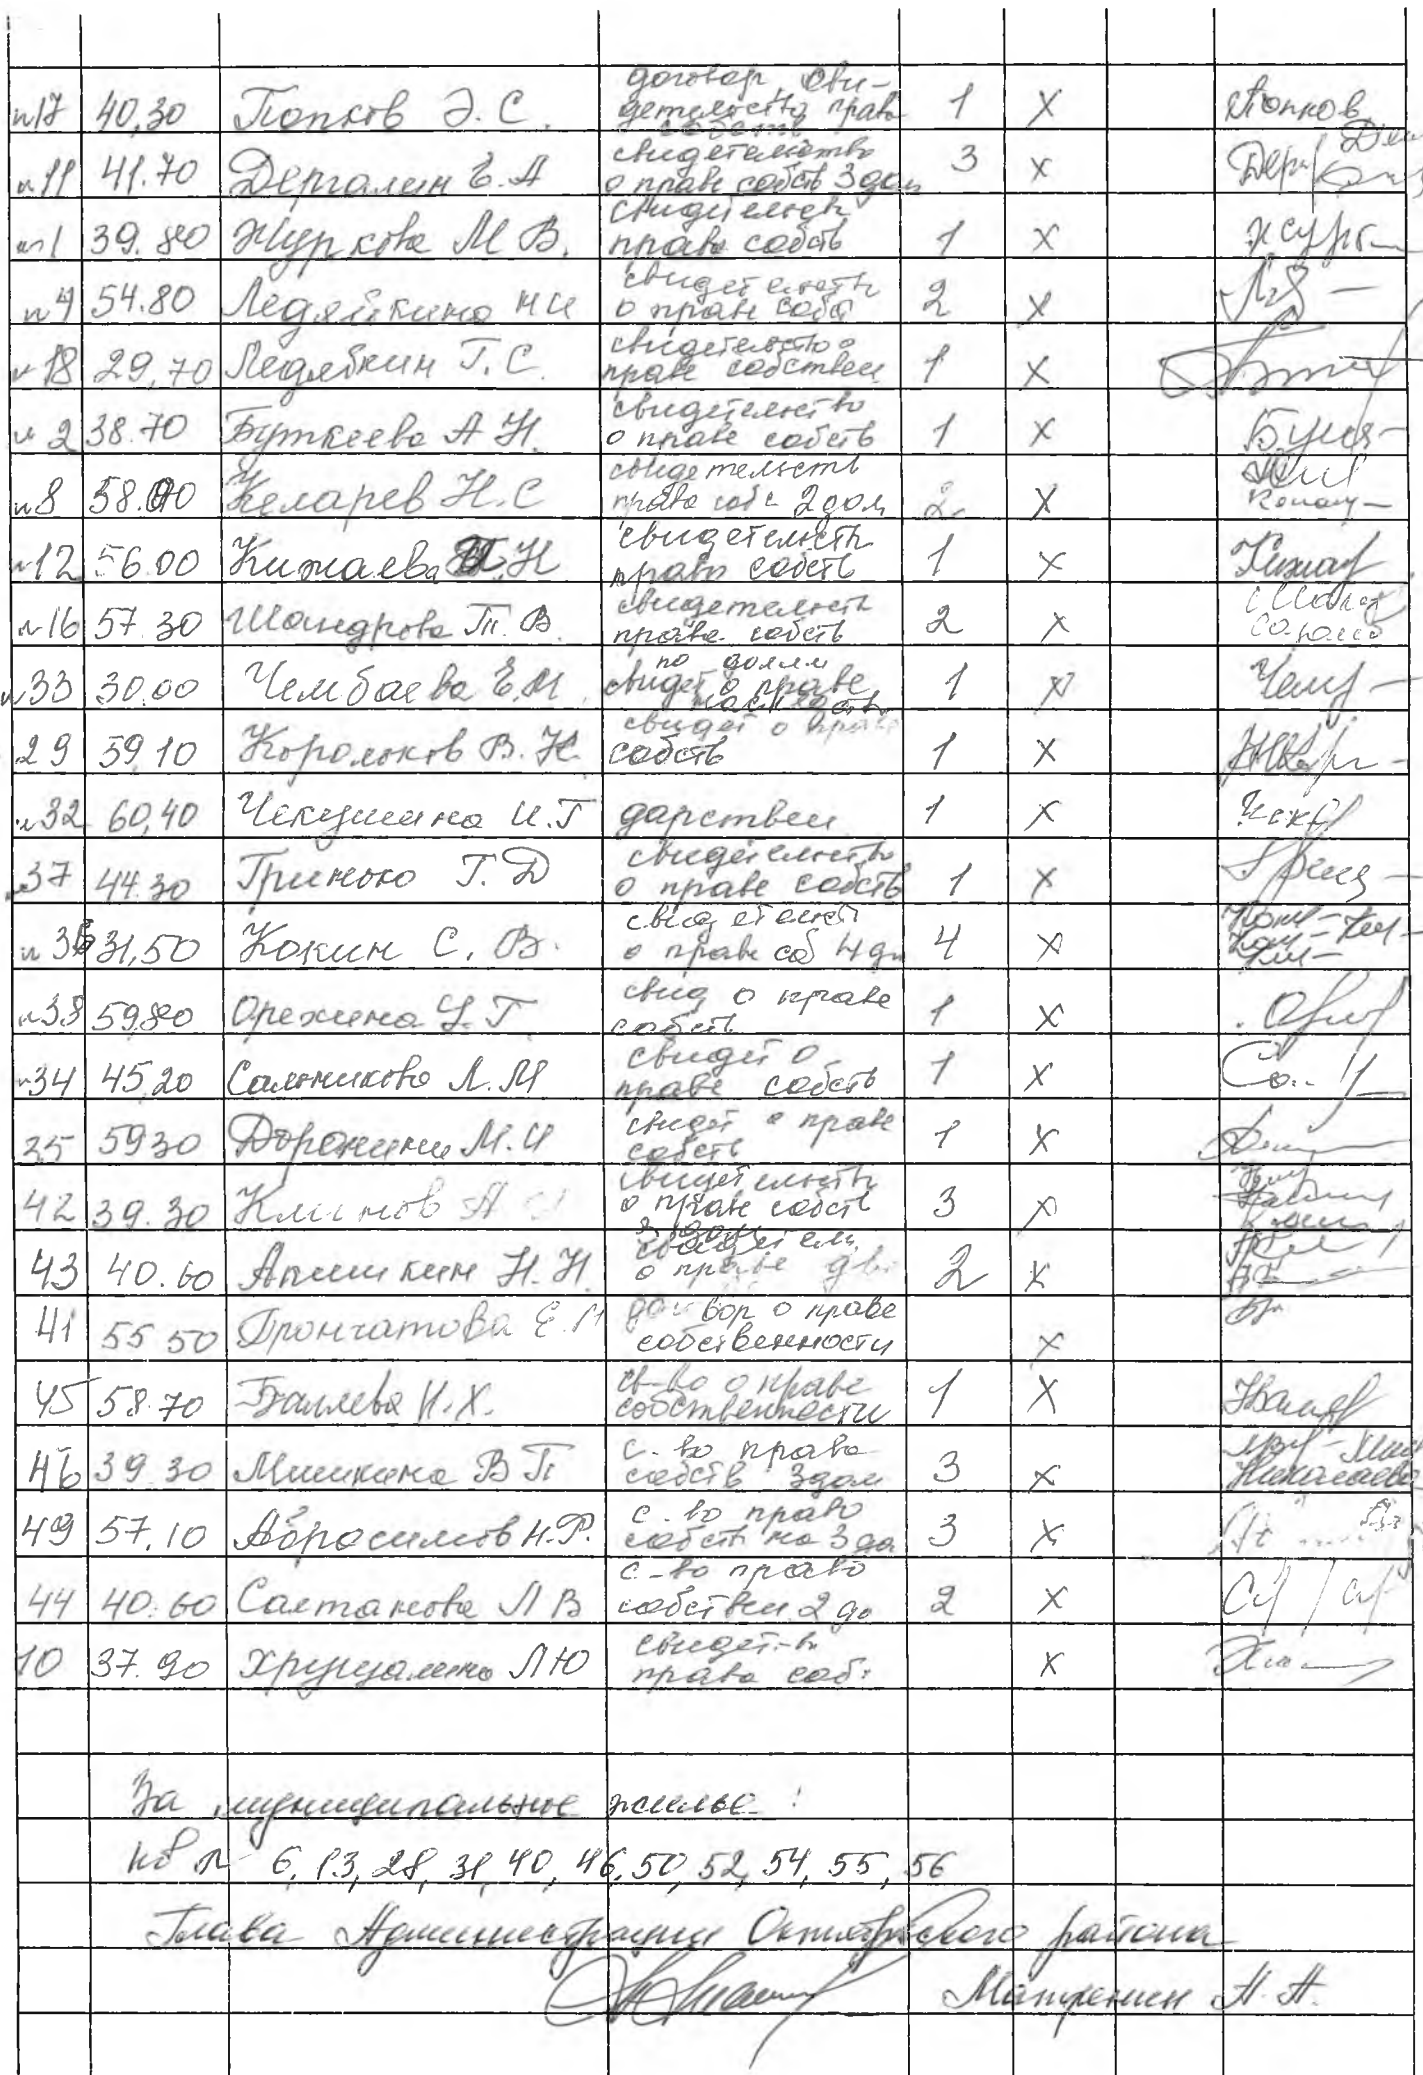 n17 40,30 Попков Э. С. договор, сви-
детельство право
собств 1 X Попков
n11 41.70 Дергалин Е. А свидетельство
о праве собств 3 дол 3 X
n1 39.80 Журкова М В. свидетельств
право собств 1 X
n4 54.80 Ледяйкина Н И свидетельств
о праве собст 2 X
n18 29,70 Ледяйкин Г. С. свидетельство о
праве собствен 1 X
n 2 38.70 Буткеева А Н. свидетельство
о праве собств 1 X
n8 58.00 Келарев Н. С свидетельств
право собс 2 дол 2 X
n12 56.00 Кижаева Н свидетельств
право собств 1 X Кижа
n16 57.30 Шандрова Т. В. свидетельств
права собств 2 X
n33 30.00 Чембаева Е. М по долям
свидет о праве
1 X
29 59,10 Корольков В. Н. свидет о праве
собств 1 X
n32 60,40 Чекушина И. Г дарствен 1 X
37 44.30 Гринько Г. Д свидетельство
о праве собств 1 X
n 36 31,50 Кокин С. В. свидетельст
о праве соб 4 дл 4 X
n38 59,80 Орехина Г свид о праве
собств 1 X
n34 45,20 Сальникова Л. М свидет о
праве собств 1 X
35 59 30 Доронина М. И свидет о праве
собств 1 X
42 39.30 Климов А свидетельств
о праве собств
3 дол 3 X
43 40.60 Апишкин Н. Н свидетель
о праве два 2 X
41 55 50 Прончатова Е. договор о праве
собственности X
45 58.70 Баляева Н. Х. св-во о праве
собственности 1 X
46 39 30 Мишкина В П с-во право
собств 3 дол 3 X Николаева
49 57,10 Абросимов Н. Р. с-во право
собств на 3 до 3 X
44 40.60 Салтанова Л В с-во право
собствен 2 до 2 X
10 37.90 Л Ю свидет-в
права соб. X
За муниципальное жилье :
кв n 6, 13, 28, 31, 40, 46, 50, 52, 54, 55, 56
Глава Администрации Октябрьского района
Матренин А. А.